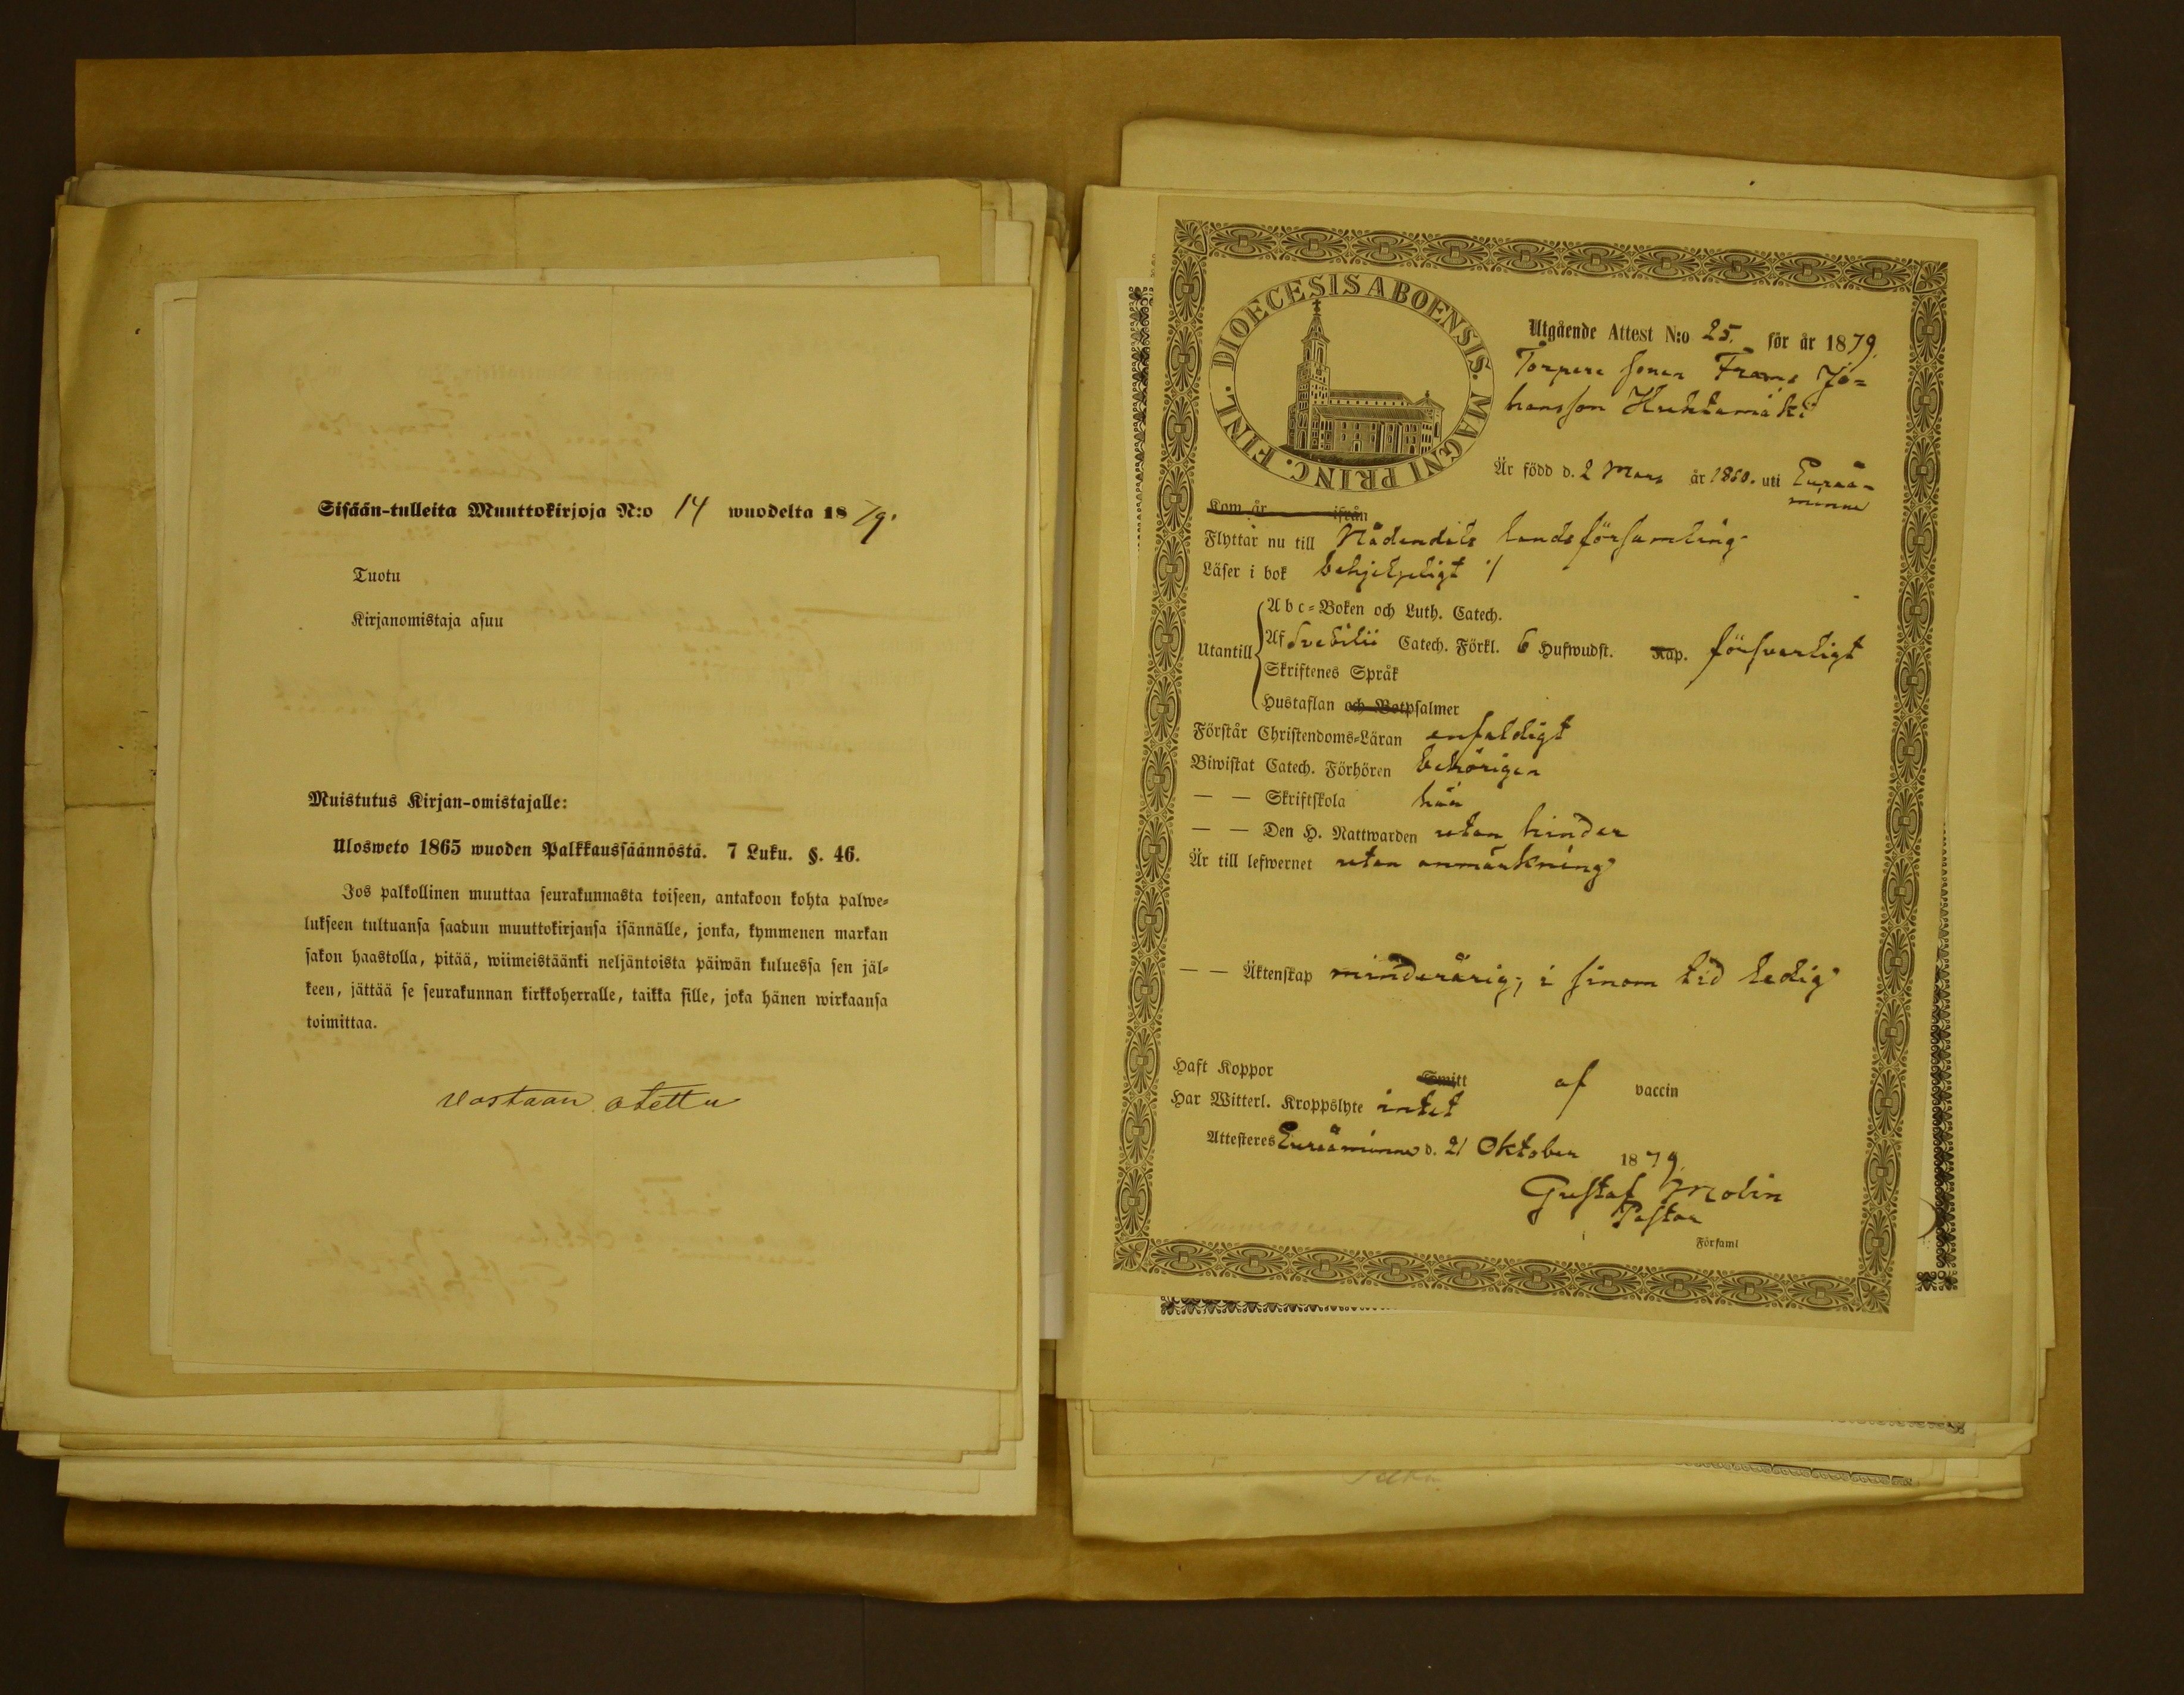 Sisään-tulleita Muuttokirjoja N:o 14 wuodelta 1879.
Tuotu
Kirjanomistaja asuu
Muistutus Kirjan-omistajalle:
Ulosweto 1865 wuoden Palkkaussäännöstä. 7 Luku. §. 46.
Jos palkollinen muuttaa seurakunnasta toiseen, antakoon kohta palwe=
lukseen tultuansa saadun muuttokirjansa isännälle, jonka, kymmenen markan
sakon haastolla, pitää, wiimeistäänki neljäntoista päiwän kuluessa sen jäl=
keen, jättää se seurakunnan kirkkoherralle, taikka sille, joka hänen wirkaansa
toimittaa.
vastaan otettu
DIOECESIS ABOENSIS. MAGNI PRINC. FINL.
Utgående Attest N:o 25. för år 1879.
Torpare sonen Frans Jo=
hansson Huhtamäki
Är född d. 2 Mars år 1860. uti Euraå=
minne
Kom år ifrån
Flyttar nu till Nådendals landsförsamling
Läser i bok behjelpligt
Utantill
Abc=Boken och Luth. Catech.
Af Svebilii Catech. Förkl. 6 Hufwudst. Kap. försvarligt
Skriftenes Språk
Hustaflan och Botpsalmer
Förstår Christendoms=Läran enfaldigt
Biwistat Catech. Förhören behörigen
— — Skriftskola här
— — Den H. Nattwarden utan hinder
Är till lefwernet utan anmärkning
— — Äktenskap minderårig; i sinom tid ledig
Haft Koppor Smitt af vaccin
Har Witterl. Kroppslyte intet
Attesteres Euraåminne d. 21 Oktober 1879.
Gustaf Molin
Pastor
Församl